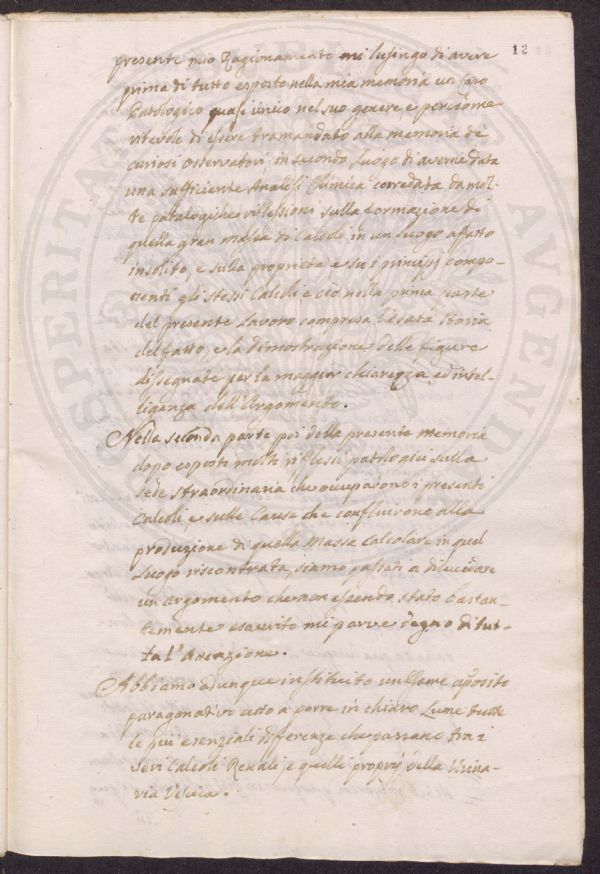 12
presente mio Ragionamento mi lusingo di avere
prima di tutto esposto nella mia memoria un faro
Patologico quasi unico nel suo genere, e perciò me
ritevole di essere tramandato alla memoria de'
curiosi osservatori in secondo Luogo di averne data
una sufficiente Analisi Chimica corredata da mol-
te patalogiche riflessioni sulla formazione di
quella gran massa di Calcoli in un luogo afatto
insolito, e sulla proprietà e su i principj compo-
nenti gli stessi Calcoli e ciò nella prima parte
del presente Lavoro compresa l'esatta storia
del fatto, e la dimostrazione delle figure
dissegnate per la maggior chiarezza ed intel-
ligenza dell'Argomento.
Nella seconda parte poi della presente memoria
dopo esposti molti riflessi patologici sulla
sede straordinaria che occuparono i presenti
Calcoli e sulle Cause che confluirono alla
produzione di quella Massa Calcolare in quel
Luogo riscontrata, siamo passati a dilucidare
un argomento che non essendo stato bastan-
temente esaurito mi parve degno di tut-
ta l'Attenzione.
Abbiamo adunque instituito un Esame aposito
paragonativo atto a porre in chiaro Lume tutte
le più esenziali differenze che passano tra i
veri Calcoli Renali, e quelli proprj della Urina-
ria Vesica.
PROSPERITATI AVGENDAE